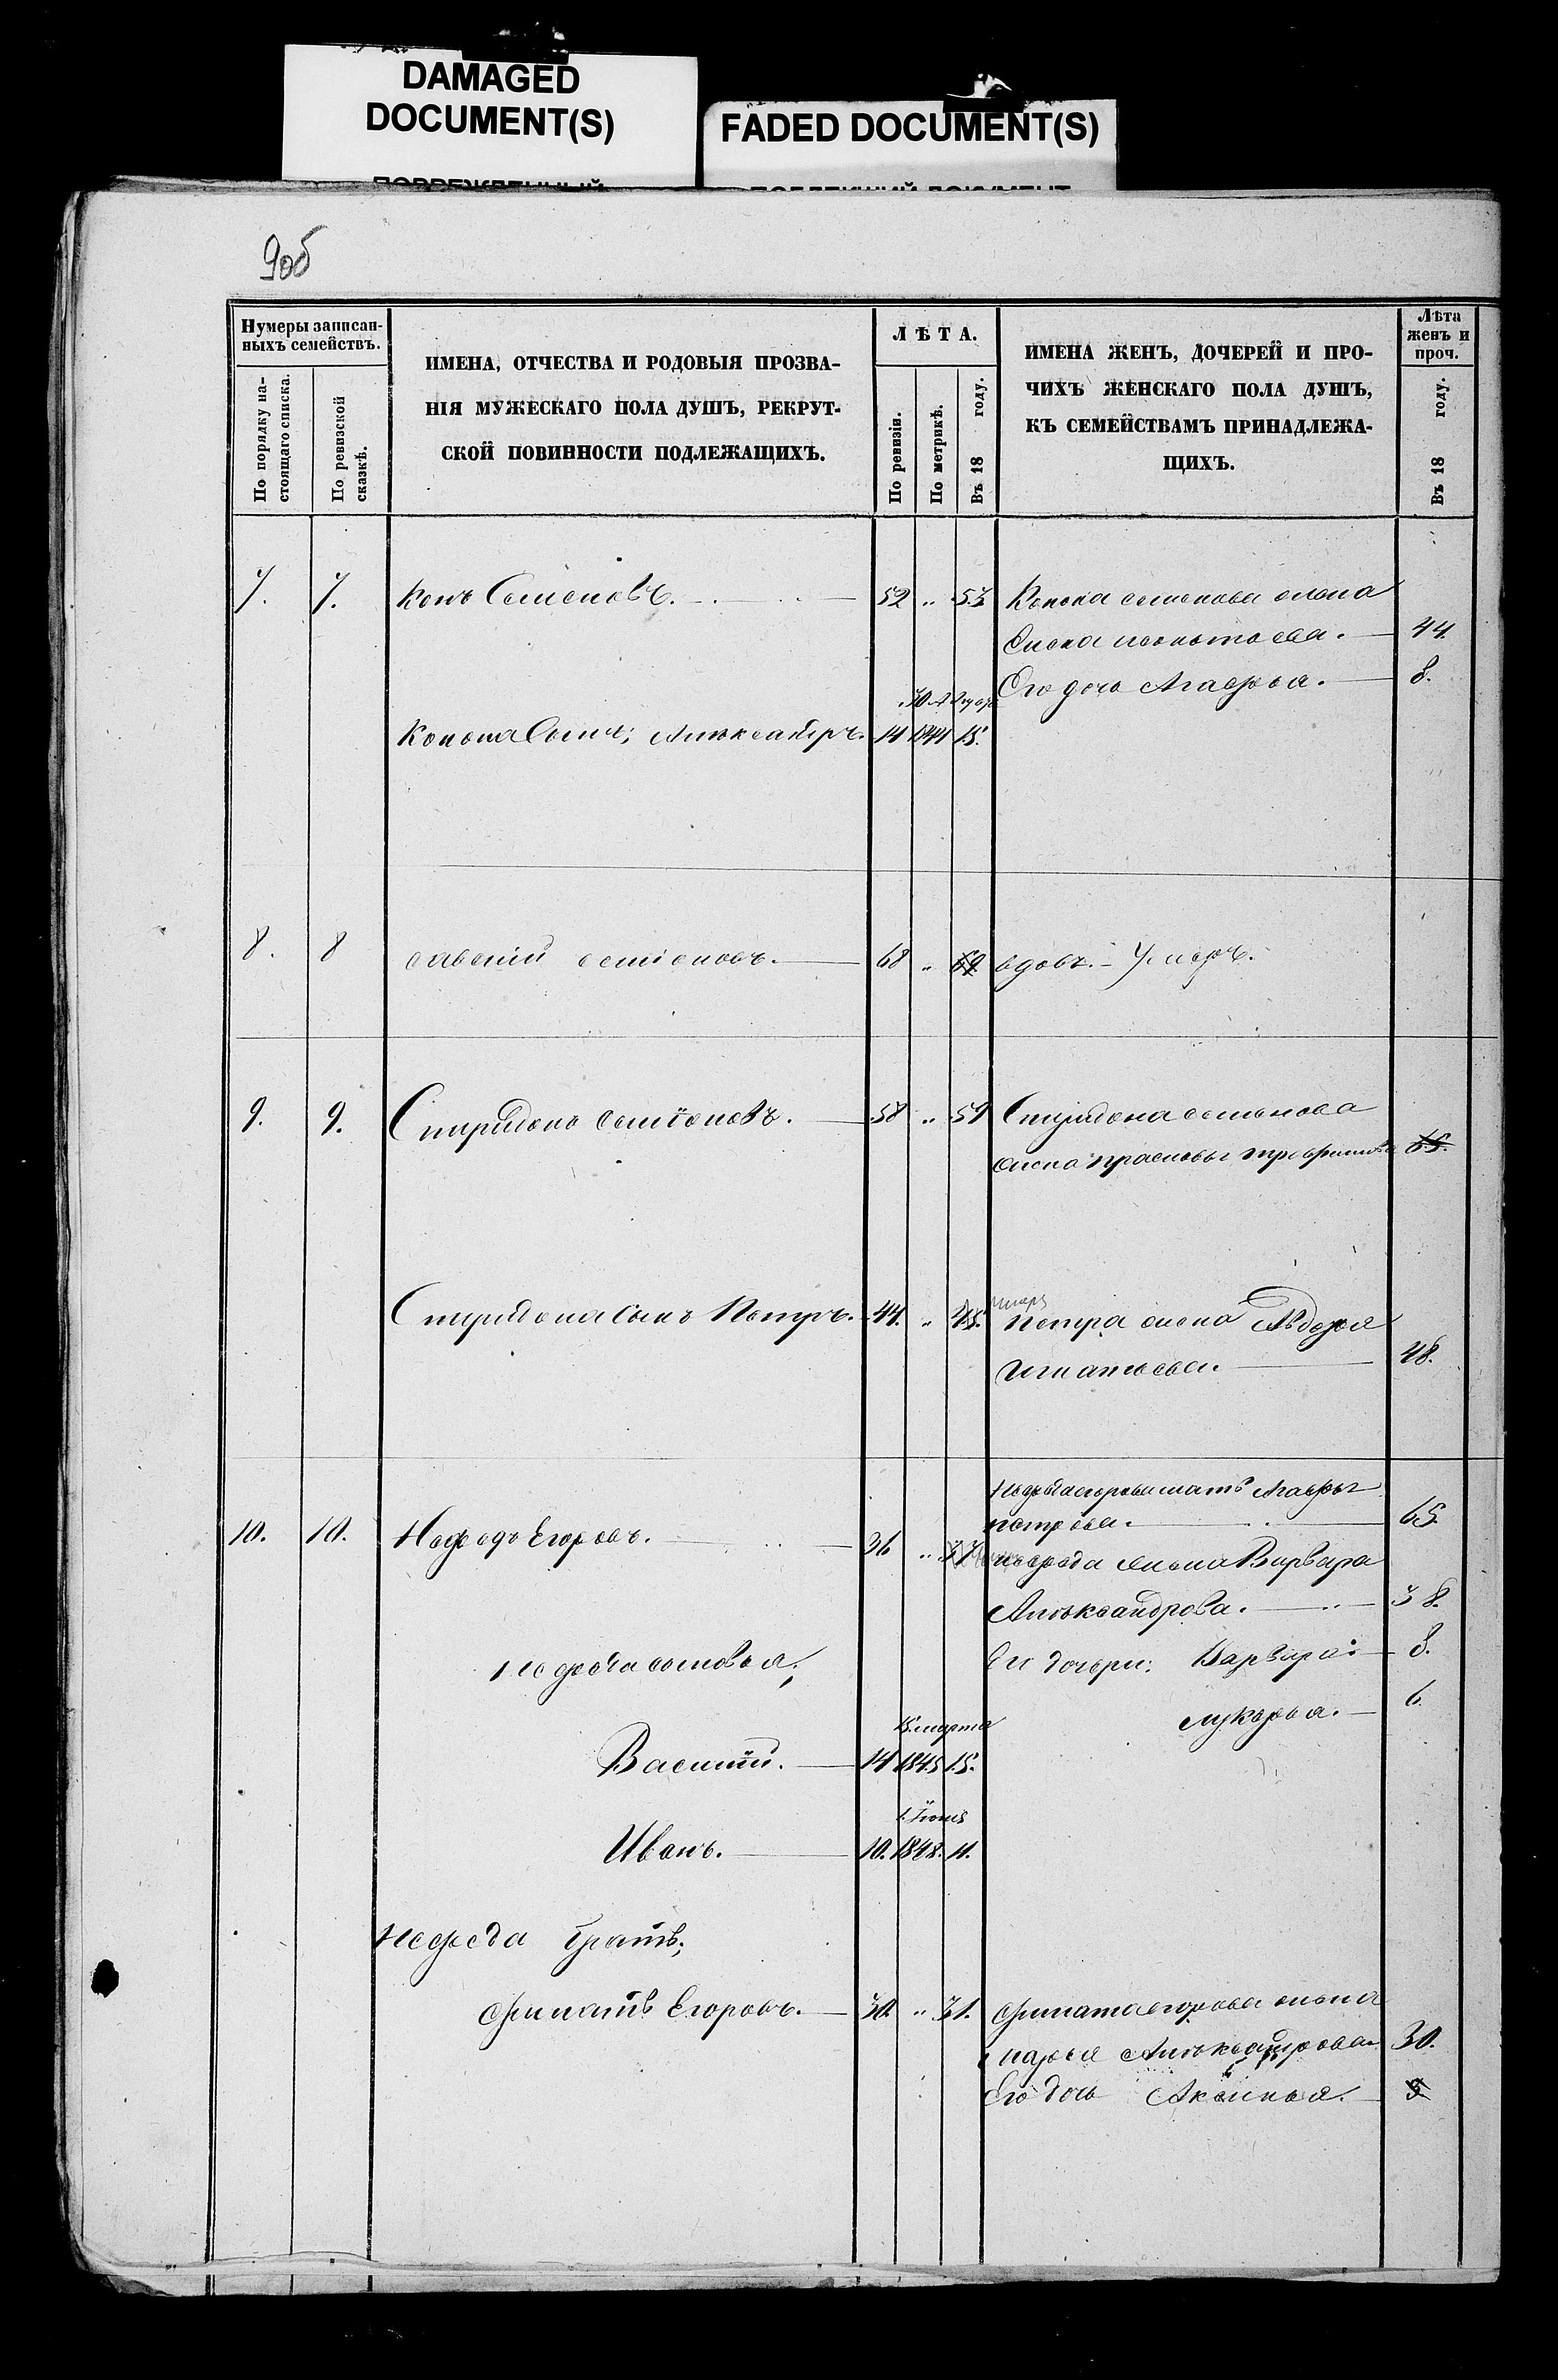 DAMAGED
DOCUMENT(S)
FADED DOCUMENT(S)
9об
Нумеры записан-
ныхъ семействъ.
По порядку на-
стоящаго списка.
По ревизской
сказкѣ.
ИМЕНА, ОТЧЕСТВА И РОДОВЫЯ ПРОЗВА-
НІЯ МУЖЕСКАГО ПОЛА ДУШЪ, РЕКРУТ-
СКОЙ ПОВИННОСТИ ПОДЛЕЖАЩИХЪ.
ЛѢТА.
По ревизіи.
По метрикѣ.
Въ 18 году.
ИМЕНА ЖЕНЪ, ДОЧЕРЕЙ И ПРО-
ЧИХЪ ЖЕНСКАГО ПОЛА ДУШЪ,
КЪ СЕМЕЙСТВАМЪ ПРИНАДЛЕЖА-
ЩИХЪ.
Лѣта
женъ и
проч.
Въ 18 году.
7. 7. Конъ Семеновъ. 52 " 53 Конона семенова жена
44.
Его дочь Агафья. 8.
30 Августа
Конона Сынъ; Александръ. 14 1844 15.
8. 8 савелій семеновъ. 68 " 69 вдовъ. - Умеръ.
9. 9. Спиридонъ семіоновъ. 58 " 59 Спиридона семенова
жена прасковья трефилова 65.
Спиридона сынъ Петръ. 44. " 45. умеръ
петра жена Авдотья
игнатьева. 48.
Нефеда егорова мать Агафья
петрова. 65.
10. 10. Нефедъ Егоровъ. 36 " 37 нефеда жена Варвара
Александрова. 38.
Нефеда сыновья; Его дочери: Варвара 8.
лукерья. 6
15 марта
Василій. 14 1845 15.
1. Іюня
Иванъ. 10. 1848. 11.
Нефеда братъ;
филатъ Егоровъ. 30. " 31. филата егорова жена
марья Александрова 30.
Его дочь Аксинья. 5